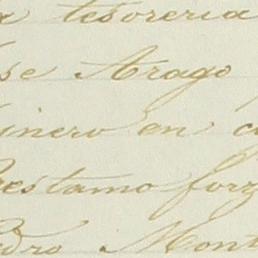 tesoreria
se Arago
inero en
estamo forz
edro Mont